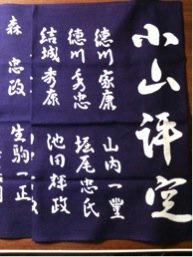 小山評定
徳川家康 山内一豊
徳川秀忠 堀尾忠氏
結城秀康 池田輝政
森忠政 生駒一正